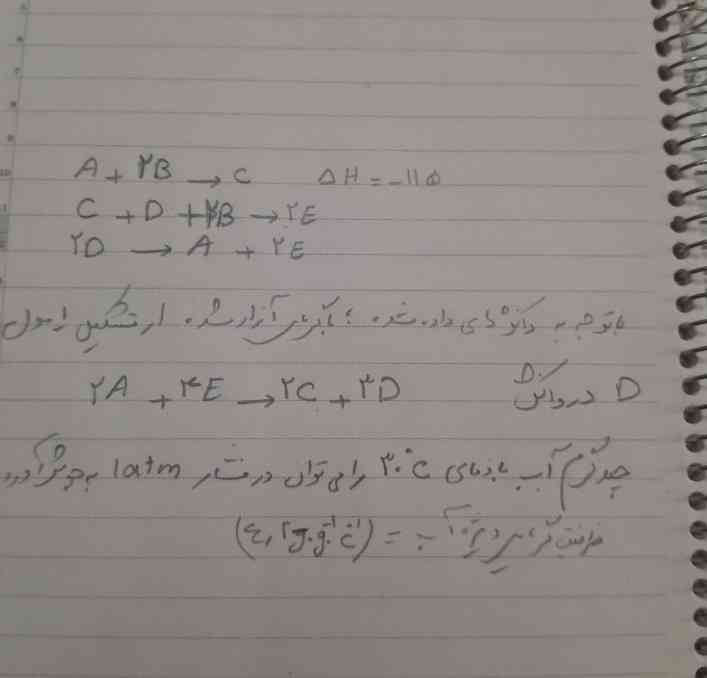 A + ۲B → C ΔH = -۱۱۵
C + D + ۲B → ۲E
۲D → A + ۲E
باتوجه به واکنش‌های داده شده ؛ باگرمای آزاد شده از تشکیل ۱مول
D درواکنش ۲A + ۴E → ۲C + ۳D
چند گرم آب با دمای ۳۰°C را می توان در فشار 1atm به جوش آورد
ظرفیت گرمایی ویژه آب = (۴,۲ J.g⁻¹.C⁻¹)